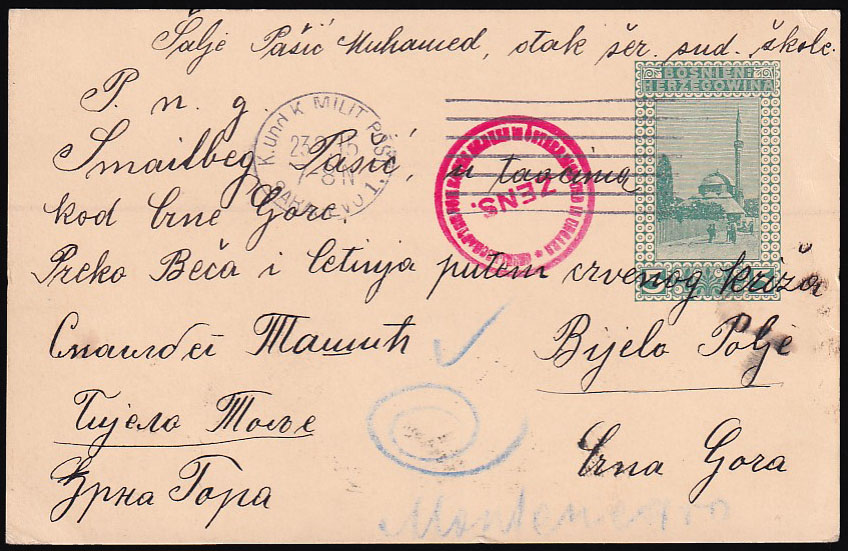 Šalje Pašić Muhamed, đak šer. sud. škole.
BOSNIEN-
HERZEGOWINA
P. n. g.
K. und K. MILIT. POST
SARAJEVO 1.
ZENS.
Smailbeg Pašić, u taocima
kod Crne Gore,
Preko Beča i Cetinja putem crvenog križa
5
Смаилбег Пашић
Bijelo Polje
Бијело Поље
Crna Gora
Црна Гора
Montenegro